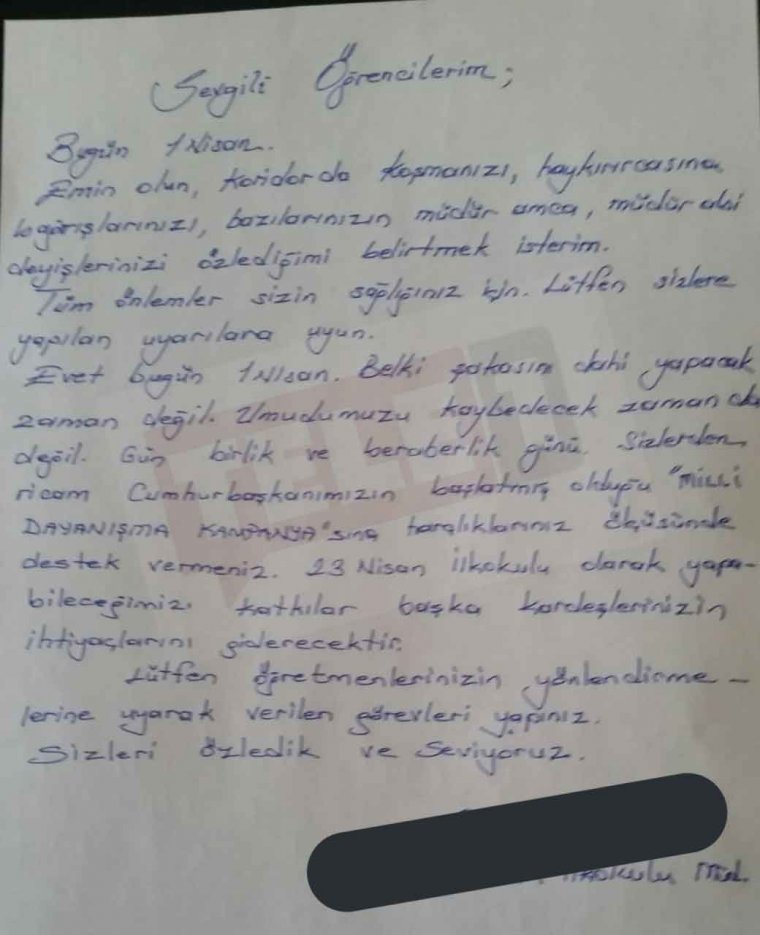 Sevgili Öğrencilerim;
Bugün 1 Nisan.
Emin olun, koridorda koşmanızı, haykırırcasına
bağrışlarınızı, bazılarınızın müdür amca, müdür abi
deyişlerinizi özlediğimi belirtmek isterim.
Tüm önlemler sizin sağlığınız için. Lütfen sizlere
yapılan uyarılara uyun.
Evet bugün 1 Nisan. Belki şakasını dahi yapacak
zaman değil. Umudumuzu kaybedecek zaman da
değil. Gün birlik ve beraberlik günü. Sizlerden
ricam Cumhurbaşkanımızın başlatmış olduğu "MİLLİ
DAYANIŞMA KAMPANYA"sına harçlıklarınız ölçüsünde
destek vermeniz. 23 Nisan İlkokulu olarak yapa-
bileceğimiz katkılar başka kardeşlerinizin
ihtiyaçlarını giderecektir.
Lütfen öğretmenlerinizin yönlendirme-
lerine uyarak verilen görevleri yapınız.
Sizleri özledik ve seviyoruz.
İlkokulu Müd.